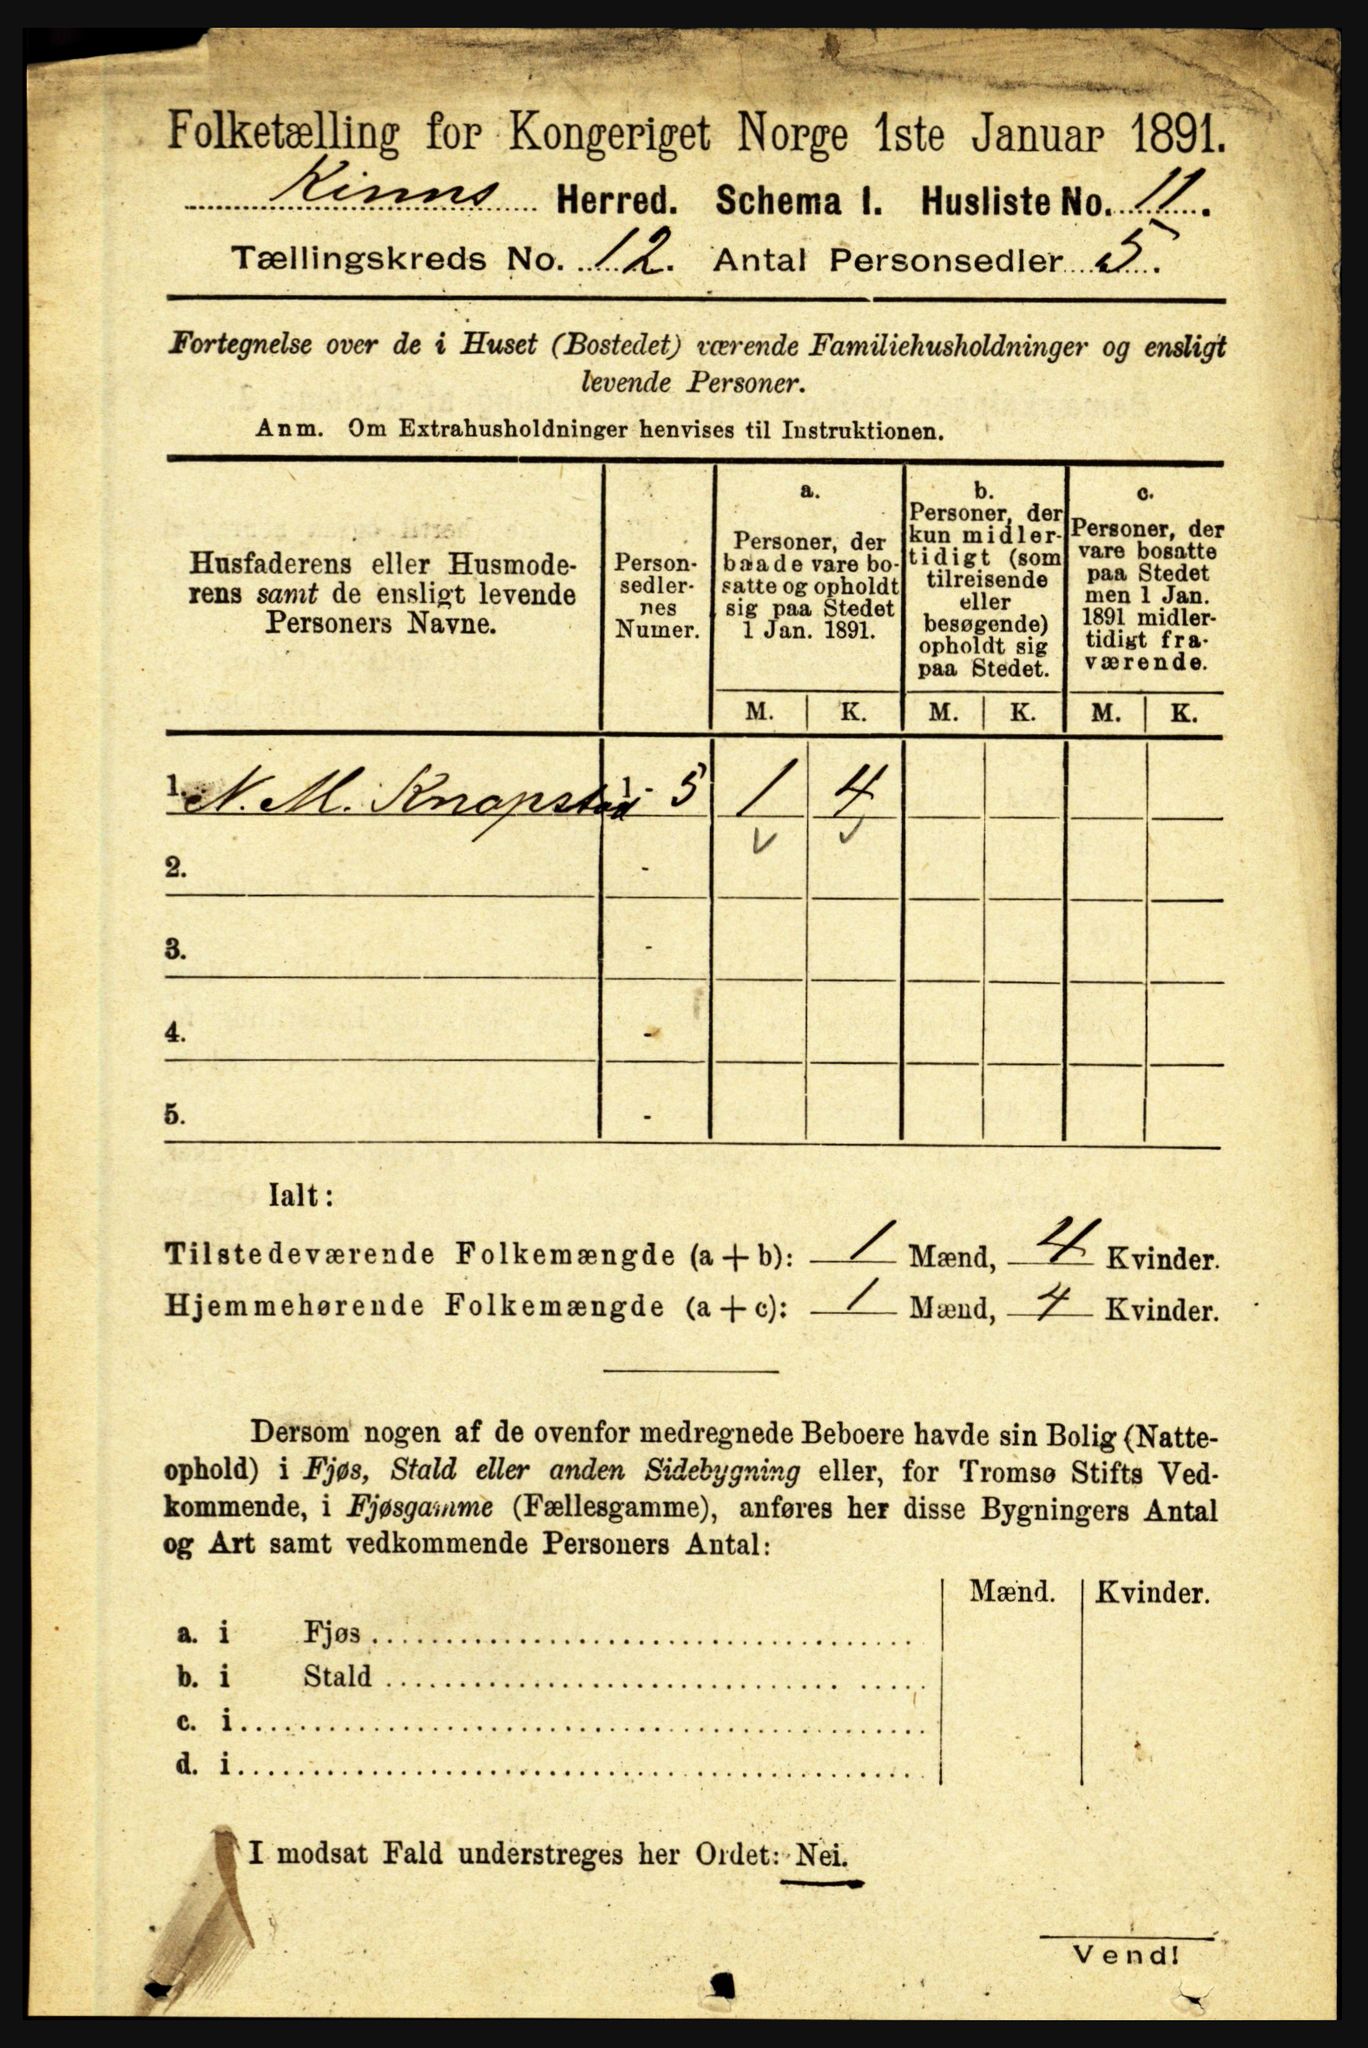 Folketælling for Kongeriget Norge 1ste Januar 1891.
Kinns Herred. Schema I. Husliste No. 11.
Tællingskreds No. 12. Antal Personsedler 5.
Fortegnelse over de i Huset (Bostedet) værende Familiehusholdninger og ensligt
levende Personer.
Anm. Om Extrahusholdninger henvises til Instruktionen.
Husfaderens eller Husmode-
rens samt de ensligt levende
Personers Navne.
Person-
sedler-
nes
Numer.
a.
Personer, der
baade vare bo-
satte og opholdt
sig paa Stedet
1 Jan. 1891.
b.
Personer, der
kun midler-
tidigt (som
tilreisende
eller
besøgende)
opholdt sig
paa Stedet.
c.
Personer, der
vare bosatte
paa Stedet
men 1 Jan.
1891 midler-
tidigt fra-
værende.
M. K. M. K. M. K.
1. N. M. Knapstad 1 - 5 1 4
2. -
3. -
4. -
5. -
Ialt:
Tilstedeværende Folkemængde (a + b): 1 Mænd, 4 Kvinder.
Hjemmehørende Folkemængde (a + c): 1 Mænd, 4 Kvinder.
Dersom nogen af de ovenfor medregnede Beboere havde sin Bolig (Natte-
ophold) i Fjøs, Stald eller anden Sidebygning eller, for Tromsø Stifts Ved-
kommende, i Fjøsgamme (Fællesgamme), anføres her disse Bygningers Antal
og Art samt vedkommende Personers Antal:
Mænd. Kvinder.
a. i Fjøs
b. i Stald
c. i
d. i
I modsat Fald understreges her Ordet: Nei.
Vend!